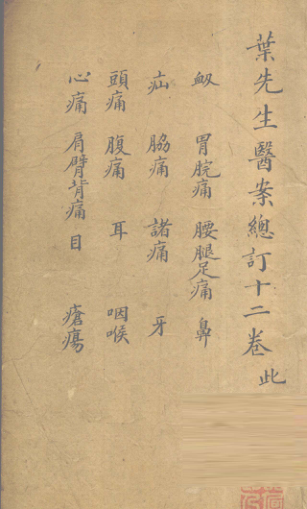 葉先生醫案總訂十二卷此
衂 胃脘痛 腰腿足痛 鼻
疝 脇痛 諸痛 牙
頭痛 腹痛 耳 咽喉
心痛 肩臂背痛 目 瘡瘍